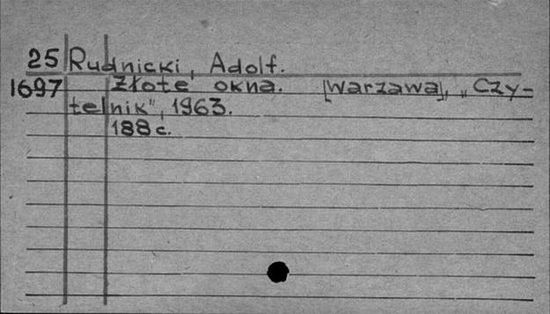 25 Rudnicki, Adolf.
1697 Złote okna. [Warzawa], „Czy-
telnik", 1963.
188 c.